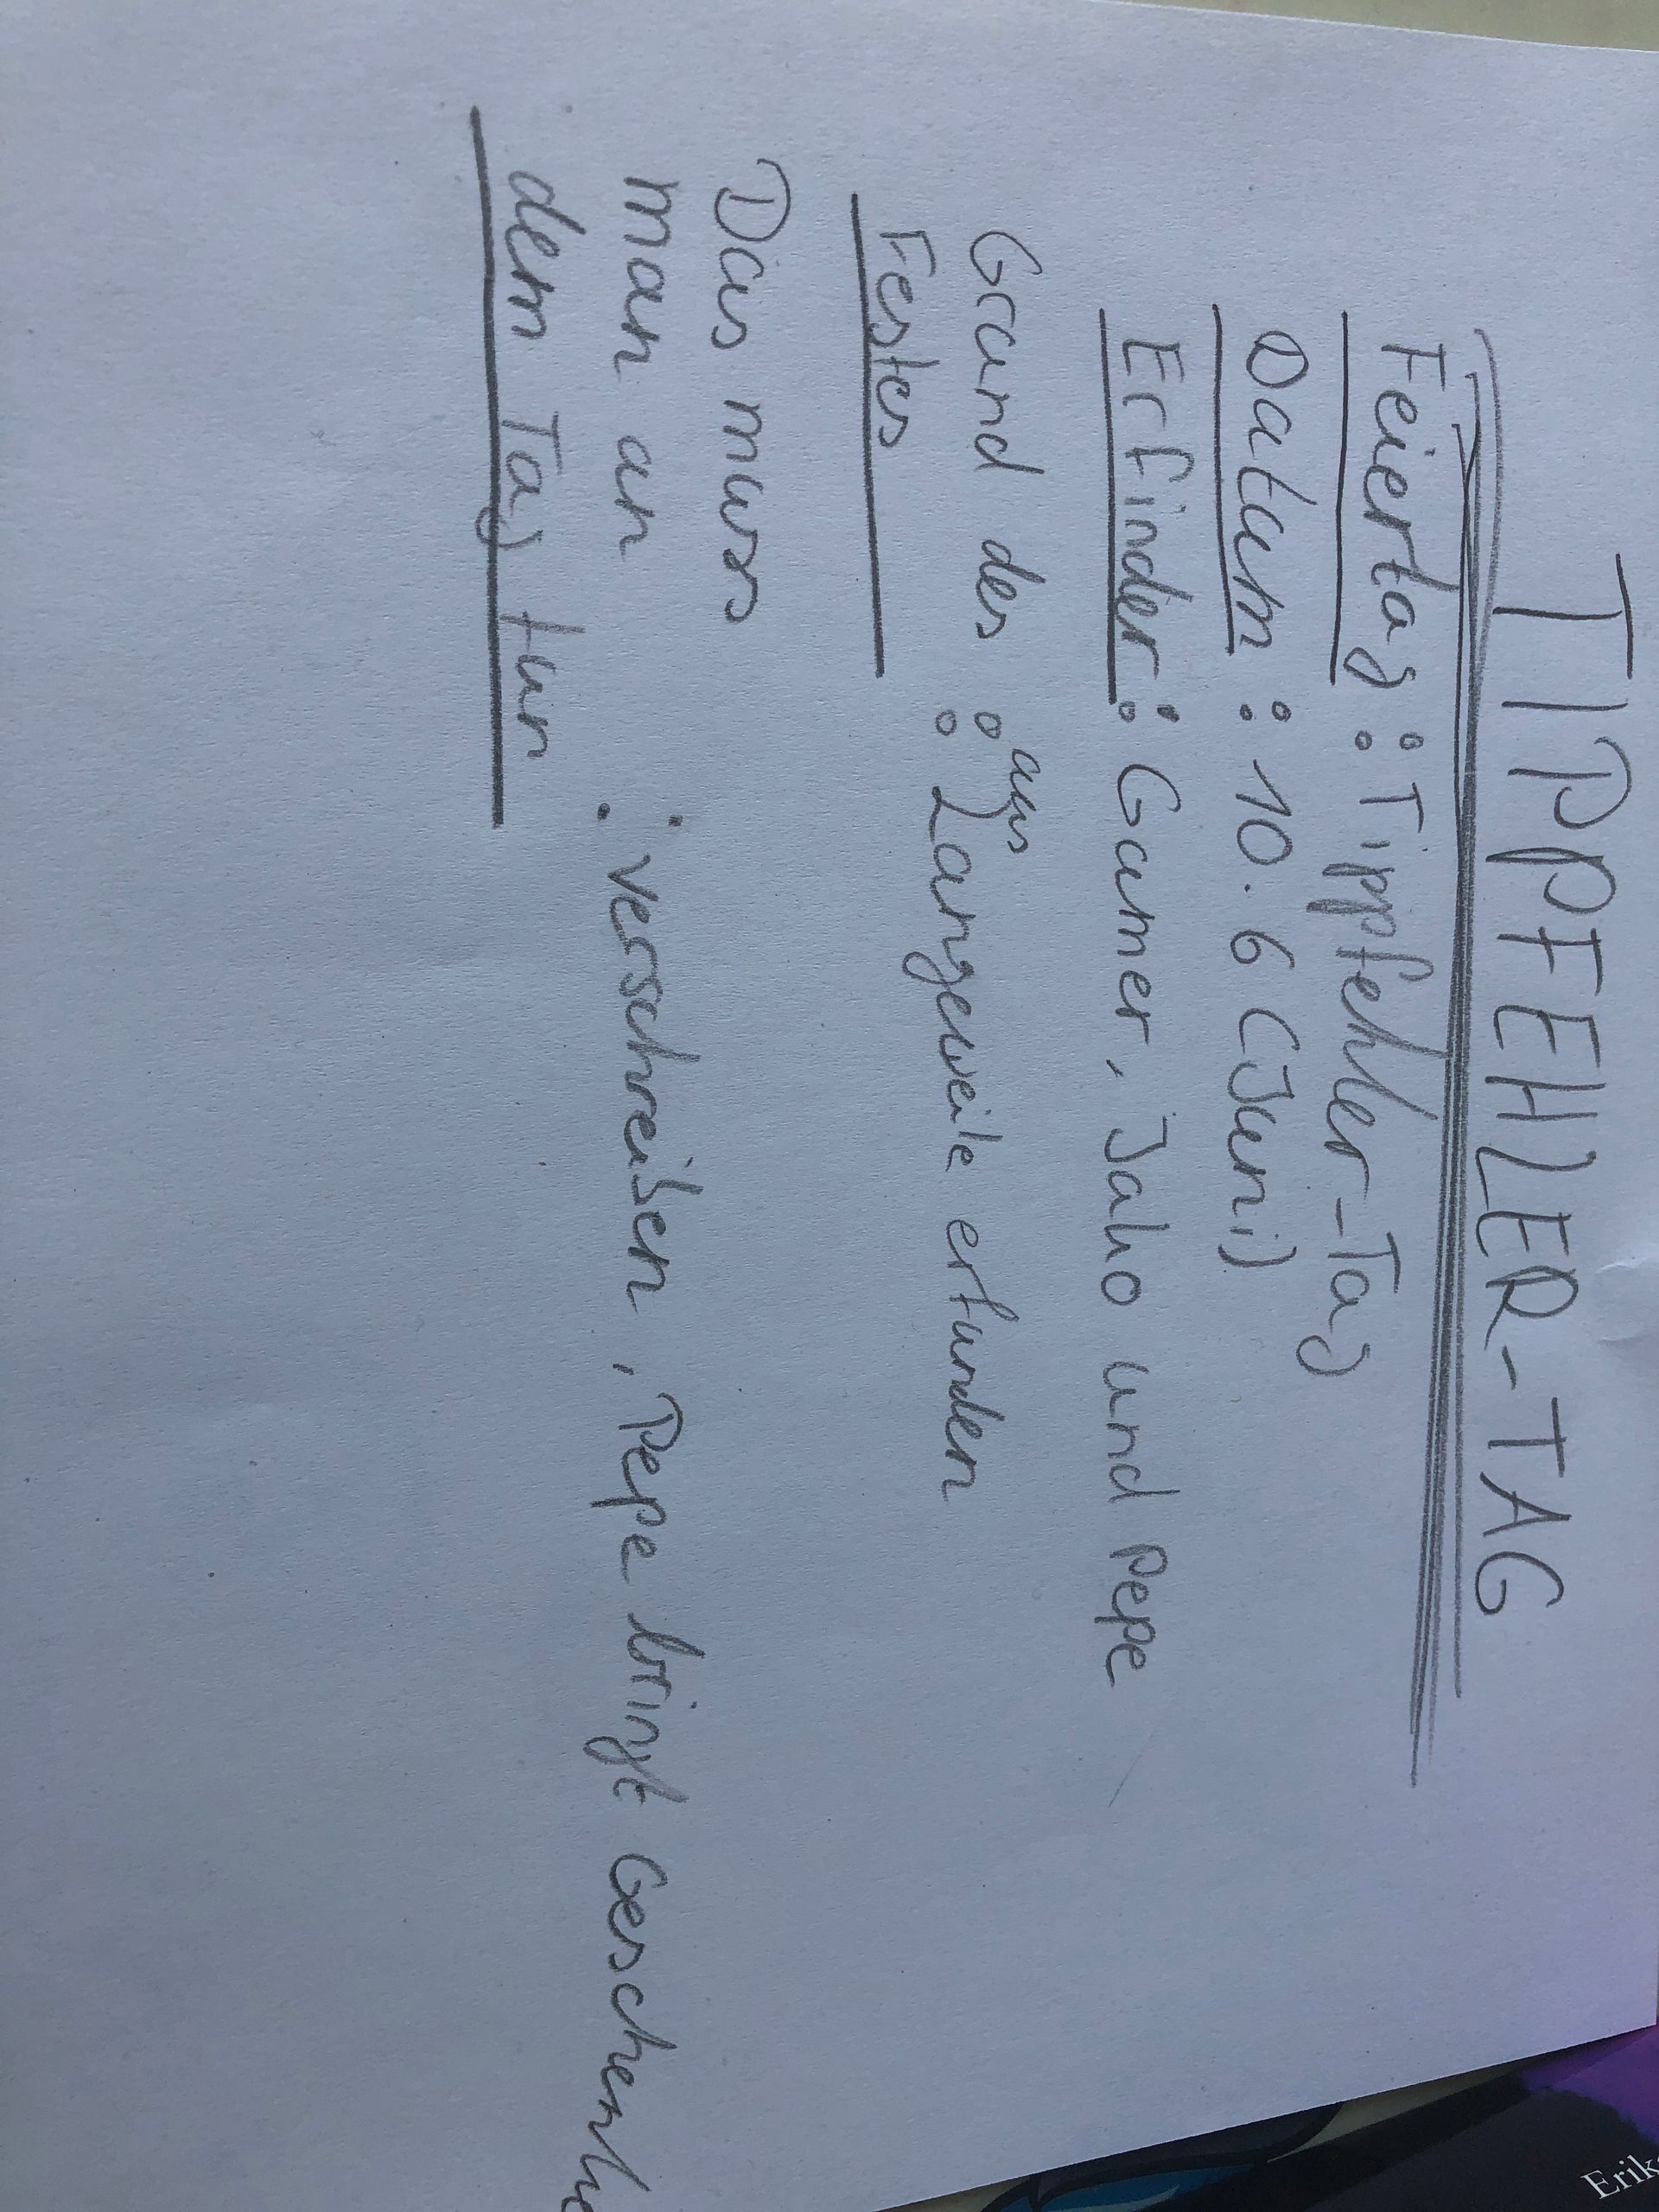 TIPPFEHLER-TAG
Feiertag: Tippfehler-Tag
Datum: 10.6 (Juni)
Erfinder: Gamer, Jako und Pepe
Grund des : aus Langeweile erfunden
Festes
Das muss
man an : verschreiben, Pepe bringt Geschenke
dem Tag tun
Erik